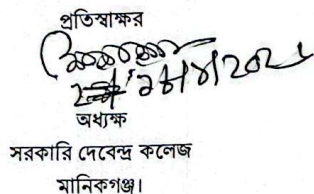 প্রতিস্বাক্ষর
অধ্যক্ষ
সরকারি দেবেন্দ্র কলেজ
মানিকগঞ্জ।